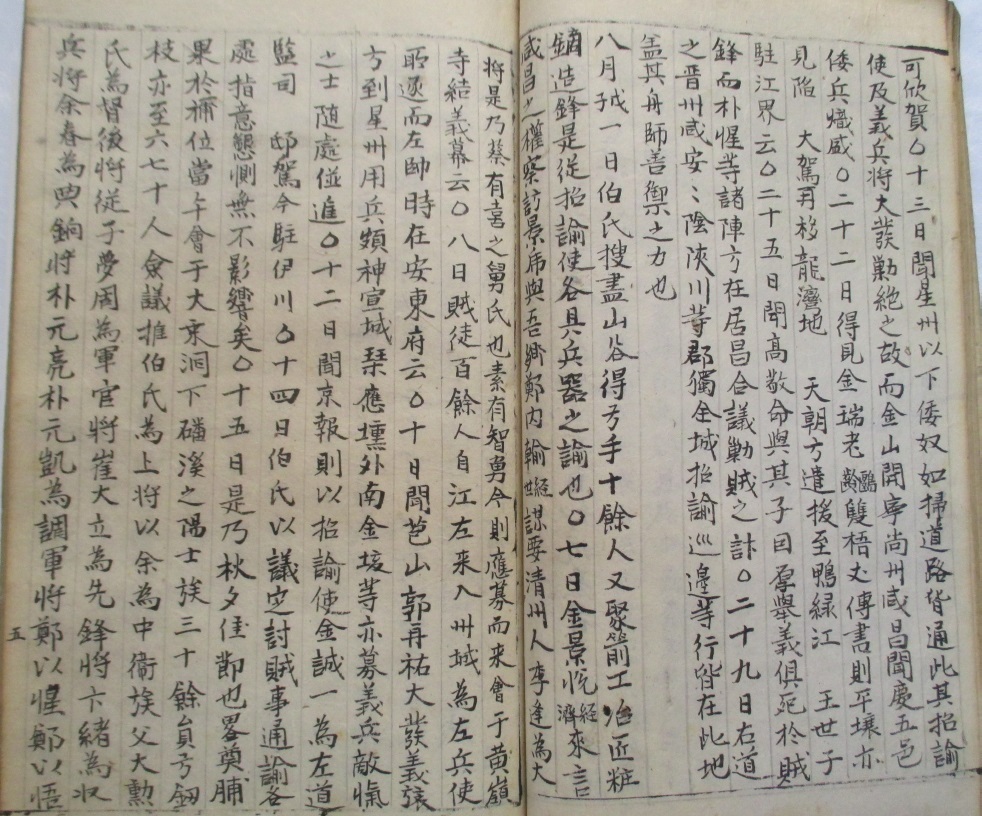 可欣賀○十三日聞星州以下倭奴如掃道路皆通此其招諭
使及義兵将大發勦絶之故而金山開寧尚州咸昌聞慶五邑
倭兵熾盛○二十二日得見金瑞老䴏齡雙梧丈傳書則平壤亦
見陷 大駕再移龍灣地 天朝方遣援至鴨緑江 王世子
駐江界云○二十五日聞高敬命與其子因厚擧義俱死於賊
鋒而朴惺等諸陣方在居昌合議勦賊之計○二十九日右道
之晋州咸安山陰陜川等郡獨全城招諭巡邉等行皆在此地
盖其舟師善禦之力也
八月戒一日伯氏搜盡山谷得弓手十餘人又聚箭工冶匠粧
鏑造鋒是従招諭使各具兵器之諭也○七日金景悦經濟來言
咸昌之權察訪景虎與吾鄕鄭内翰經世謀要清州人李逢為大
将是乃蔡有喜之舅氏也素有智勇今則應募而来會于黄嶺
寺結義幕云○八日賊徒百餘人自江左来入州城為左兵使
所逐而左帥時在安東府云○十日聞苞山郭再祐大發義旅
方到星州用兵頗神宣城琴應壎外南金垓等亦募義兵敵愾
之士随處併進○十二日聞京報則以招諭使金誠一為左道
監司 邸駕今駐伊川○十四日伯氏以議定討賊事通諭各
處指意懇惻無不影響矣○十五日是乃秋夕佳節也畧奠脯
果於禰位當午會于大枣洞下磻溪之陽士族三十餘員弓釼
枝亦至六七十人僉議推伯氏為上将以余為中衛族父大勲
氏為督後将従子夢周為軍官将崔大立為先鋒将卞緒為収
兵将余春為典餉将朴元亮朴元凱為調軍将鄭以惺鄭以悟
五